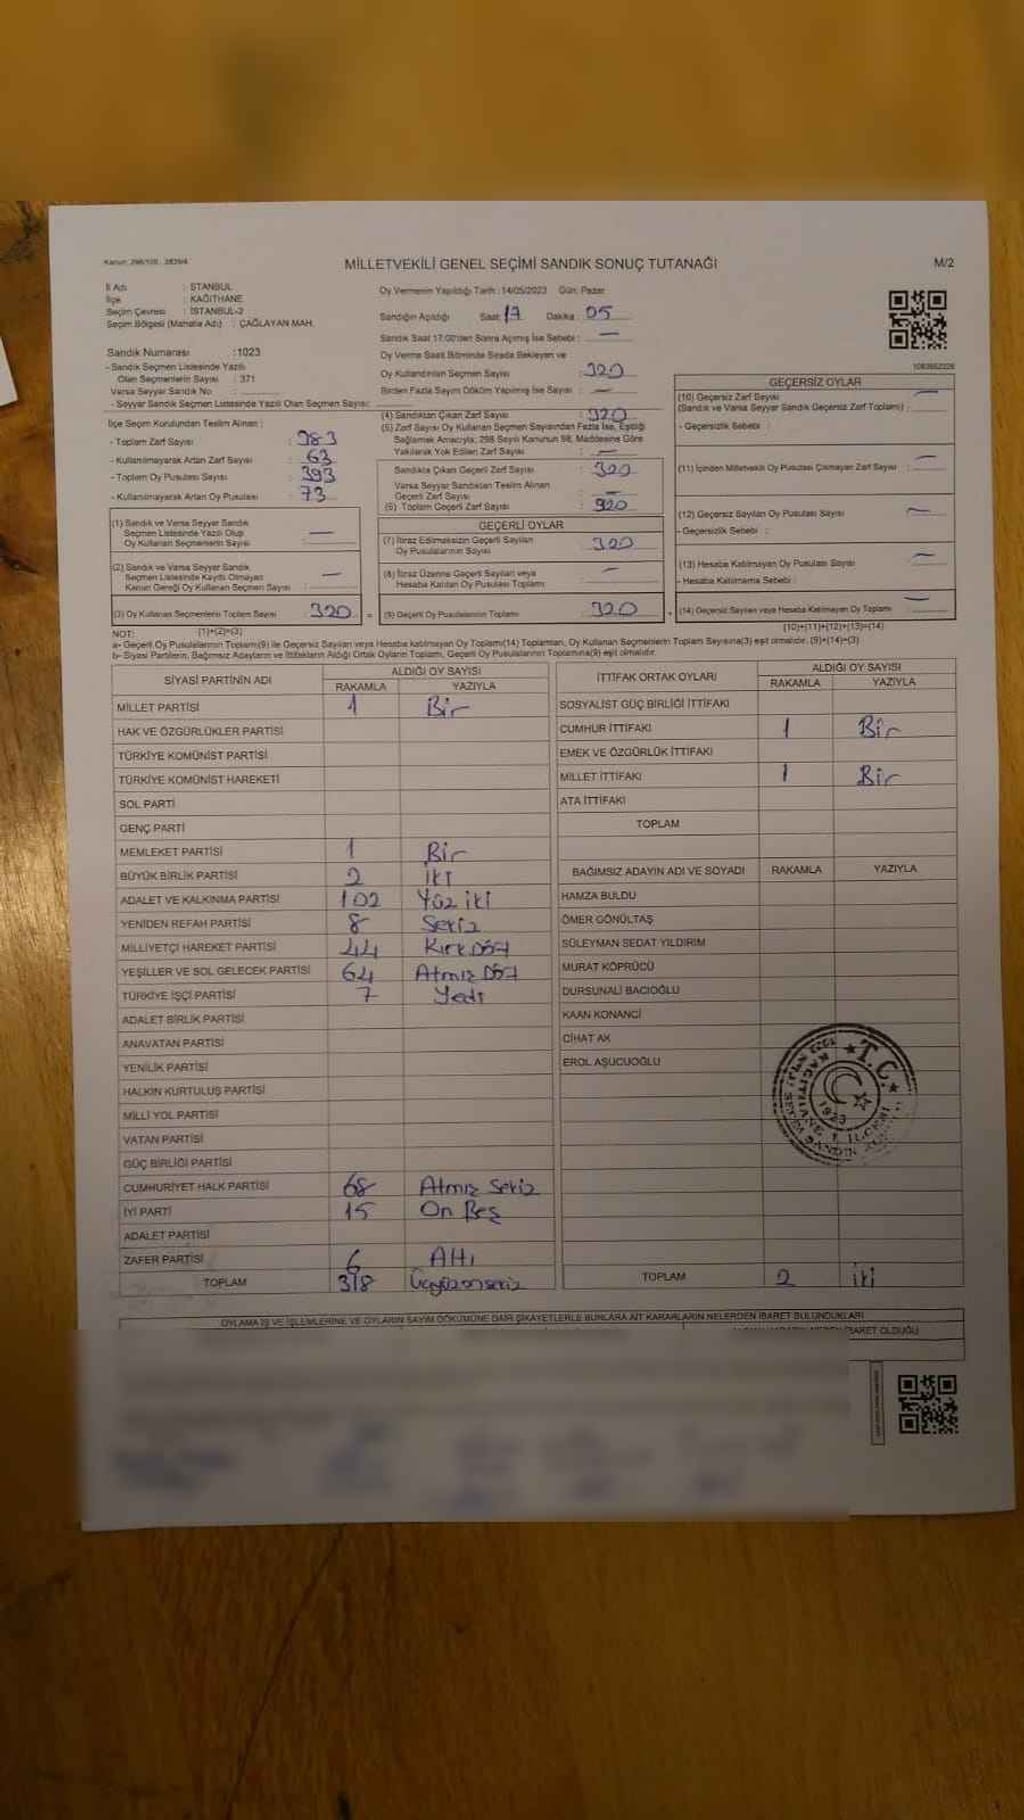 MİLLETVEKİLİ GENEL SEÇİMİ SANDIK SONUÇ TUTANAĞI
M/2
İl Adı : İSTANBUL
İlçe : KAĞITHANE
Seçim Çevresi : İSTANBUL-2
Seçim Bölgesi (Mahalle Adı) : ÇAĞLAYAN MAH.
Sandık Numarası :1023
- Sandık Seçmen Listesinde Yazılı
Olan Seçmenlerin Sayısı : 371
Varsa Seyyar Sandık No :
- Seyyar Sandık Seçmen Listesinde Yazılı Olan Seçmen Sayısı:
Oy Vermenin Yapıldığı Tarih : 14/05/2023 Gün: Pazar
Sandığın Açıldığı Saat: 17 Dakika : 05
Sandık Saat 17:00'den Sonra Açılmış İse Sebebi : —
Oy Verme Saati Bitiminde Sırada Bekleyen ve
Oy Kullandırılan Seçmen Sayısı : 320
Birden Fazla Sayım Döküm Yapılmış İse Sayısı : —
İlçe Seçim Kurulundan Teslim Alınan :
- Toplam Zarf Sayısı : 383
- Kullanılmayarak Artan Zarf Sayısı : 63
- Toplam Oy Pusulası Sayısı : 393
- Kullanılmayarak Artan Oy Pusulası : 73
(1) Sandık ve Varsa Seyyar Sandık
Seçmen Listesinde Yazılı Olup
Oy Kullanan Seçmenlerin Sayısı : —
(2) Sandık ve Varsa Seyyar Sandık
Seçmen Listesinde Kayıtlı Olmayan
Kanun Gereği Oy Kullanan Seçmen Sayısı : —
(3) Oy Kullanan Seçmenlerin Toplam Sayısı : 320 =
(1)+(2)=(3)
(4) Sandıktan Çıkan Zarf Sayısı : 320
(5) Zarf Sayısı Oy Kullanan Seçmen Sayısından Fazla İse, Eşitliği
Sağlamak Amacıyla; 298 Sayılı Kanunun 98. Maddesine Göre
Yakılarak Yok Edilen Zarf Sayısı : —
Sandıkta Çıkan Geçerli Zarf Sayısı : 320
Varsa Seyyar Sandıktan Teslim Alınan
Geçerli Zarf Sayısı : —
(6) Toplam Geçerli Zarf Sayısı : 320
GEÇERLİ OYLAR
(7) İtiraz Edilmeksizin Geçerli Sayılan
Oy Pusulalarının Sayısı : 320
(8) İtiraz Üzerine Geçerli Sayılan veya
Hesaba Katılan Oy Pusulası Toplamı : —
(9) Geçerli Oy Pusulalarının Toplamı : 320 +
GEÇERSİZ OYLAR
(10) Geçersiz Zarf Sayısı
(Sandık ve Varsa Seyyar Sandık Geçersiz Zarf Toplamı) : —
- Geçersizlik Sebebi :
(11) İçinden Milletvekili Oy Pusulası Çıkmayan Zarf Sayısı : —
(12) Geçersiz Sayılan Oy Pusulası Sayısı : —
- Geçersizlik Sebebi :
(13) Hesaba Katılmayan Oy Pusulası Sayısı : —
- Hesaba Katılmama Sebebi :
(14) Geçersiz Sayılan veya Hesaba Katılmayan Oy Toplamı : —
(10)+(11)+(12)+(13)=(14)
NOT:
a- Geçerli Oy Pusulalarının Toplamı(9) ile Geçersiz Sayılan veya Hesaba katılmayan Oy Toplamı(14) Toplamları, Oy Kullanan Seçmenlerin Toplam Sayısına(3) eşit olmalıdır. (9)+(14)=(3)
b- Siyasi Partilerin, Bağımsız Adayların ve İttifakların Aldığı Ortak Oyların Toplamı, Geçerli Oy Pusulalarının Toplamına(9) eşit olmalıdır.
SİYASİ PARTİNİN ADI ALDIĞI OY SAYISI
RAKAMLA YAZIYLA
MİLLET PARTİSİ 1 Bir
HAK VE ÖZGÜRLÜKLER PARTİSİ
TÜRKİYE KOMÜNİST PARTİSİ
TÜRKİYE KOMÜNİST HAREKETİ
SOL PARTİ
GENÇ PARTİ
MEMLEKET PARTİSİ 1 Bir
BÜYÜK BİRLİK PARTİSİ 2 İki
ADALET VE KALKINMA PARTİSİ 102 Yüz iki
YENİDEN REFAH PARTİSİ 8 Sekiz
MİLLİYETÇİ HAREKET PARTİSİ 44 Kırk Dört
YEŞİLLER VE SOL GELECEK PARTİSİ 64 Atmış Dört
TÜRKİYE İŞÇİ PARTİSİ 7 Yedi
ADALET BİRLİK PARTİSİ
ANAVATAN PARTİSİ
YENİLİK PARTİSİ
HALKIN KURTULUŞ PARTİSİ
MİLLİ YOL PARTİSİ
VATAN PARTİSİ
GÜÇ BİRLİĞİ PARTİSİ
CUMHURİYET HALK PARTİSİ 68 Atmış Sekiz
İYİ PARTİ 15 On Beş
ADALET PARTİSİ
ZAFER PARTİSİ 6 Altı
TOPLAM 318 Üçyüzonsekiz
İTTİFAK ORTAK OYLARI ALDIĞI OY SAYISI
RAKAMLA YAZIYLA
SOSYALİST GÜÇ BİRLİĞİ İTTİFAKI
CUMHUR İTTİFAKI 1 Bir
EMEK VE ÖZGÜRLÜK İTTİFAKI
MİLLET İTTİFAKI 1 Bir
ATA İTTİFAKI
TOPLAM
BAĞIMSIZ ADAYIN ADI VE SOYADI RAKAMLA YAZIYLA
HAMZA BULDU
ÖMER GÖNÜLTAŞ
SÜLEYMAN SEDAT YILDIRIM
MURAT KÖPRÜCÜ
DURSUNALİ BACIOĞLU
KAAN KONANCİ
CİHAT AK
EROL AŞUCUOĞLU
T.C.
1923
TOPLAM 2 iki
OYLAMA İŞ VE İŞLEMLERİNE VE OYLARIN SAYIM DÖKÜMÜNE DAİR ŞİKAYETLERLE BUNLARA AİT KARARLARIN NELERDEN İBARET BULUNDUKLARI
İBARET OLDUĞU